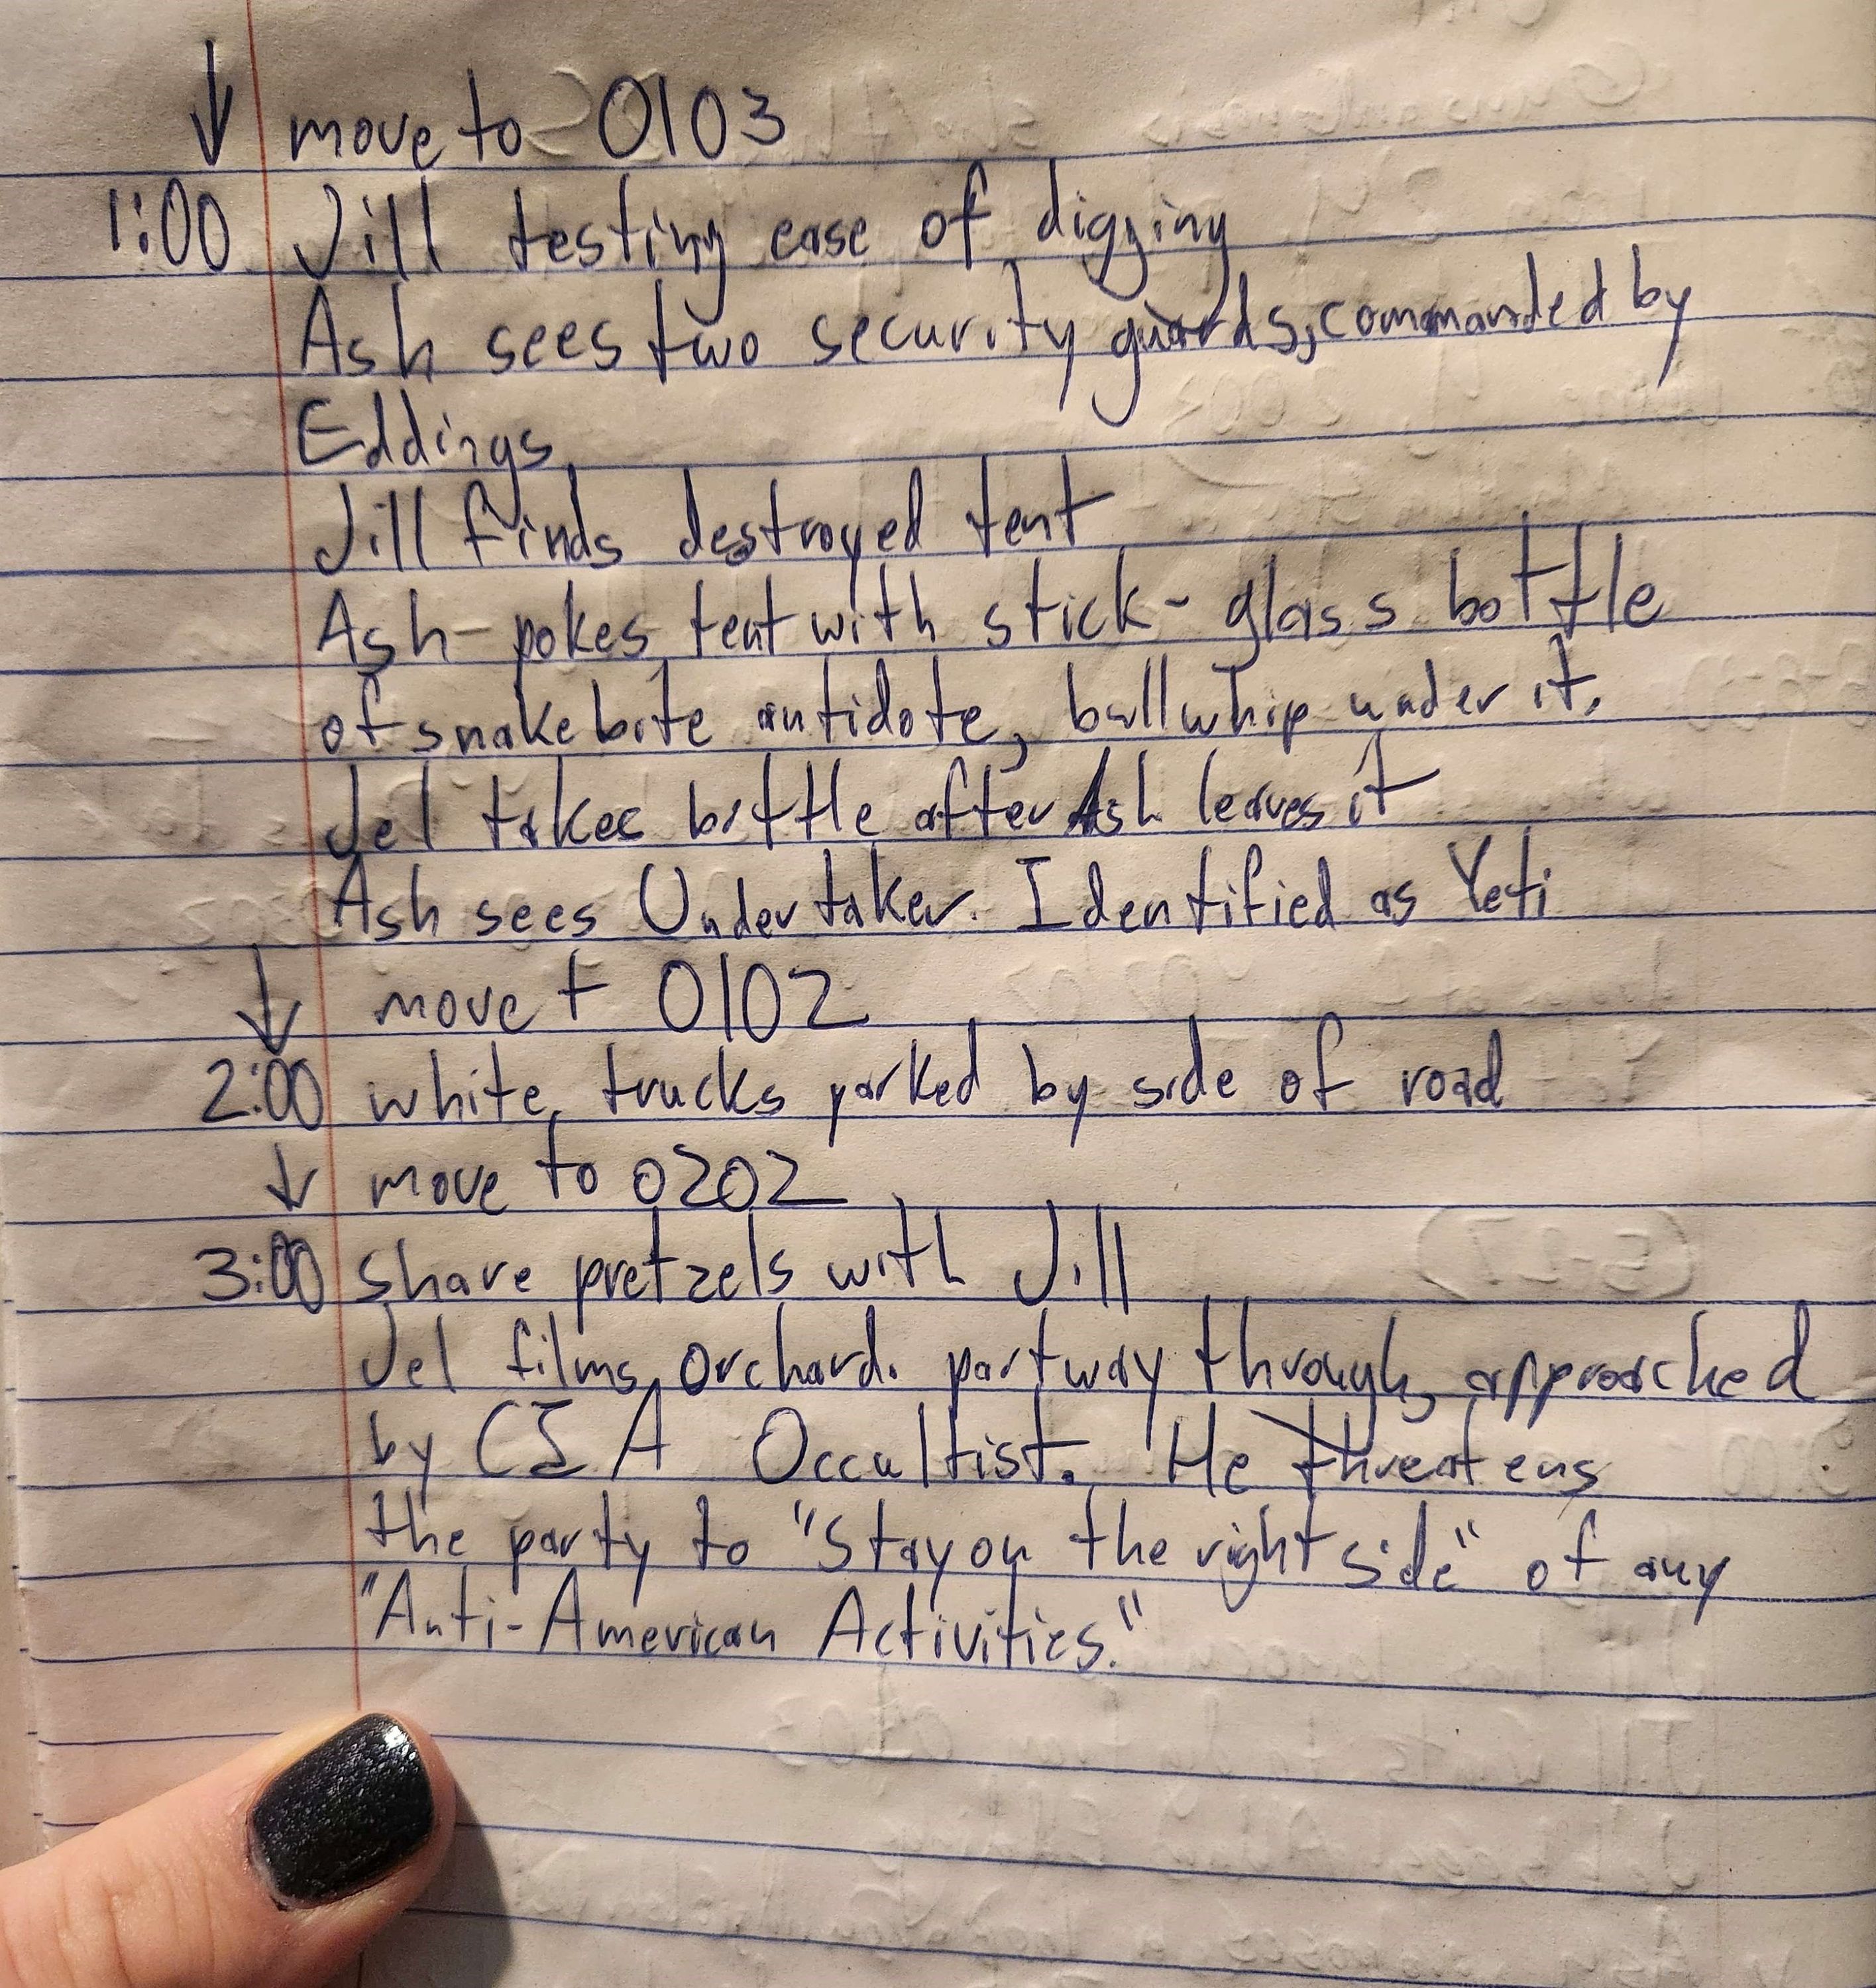 ↓ move to 0103
1:00 Jill testing ease of digging
Ash sees two security guards, commanded by
Eddings
Jill finds destroyed tent
Ash-pokes tent with stick - glass bottle
of snakebite antidote, bullwhip under it.
Jel takes bottle after Ash leaves it
Ash sees Undertaker. Identified as Yeti
↓ move t 0102
2:00 white trucks parked by side of road
↓ move to 0202
3:00 share pretzels with Jill
Jel films orchard. partway through, approached
by CIA Occultist. He threatens
the party to "stay on the right side" of any
"Anti-American Activities."